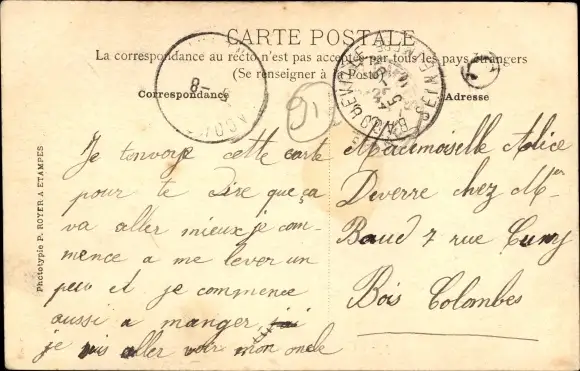 CARTE POSTALE
La correspondance au recto n'est pas acceptée par tous les pays étrangers
(Se renseigner à la Poste)
Correspondance
Adresse
Je t'envoye cette carte
pour te dire que ça
va aller mieux je com-
mence a me lever un
peu et je commence
aussi a manger,
je vais aller voir mon oncle
Mademoiselle Alice
Deverre chez Mr
Baud 7 rue Cuny
Bois Colombes
Phototypie P. ROYER A ETAMPES
91